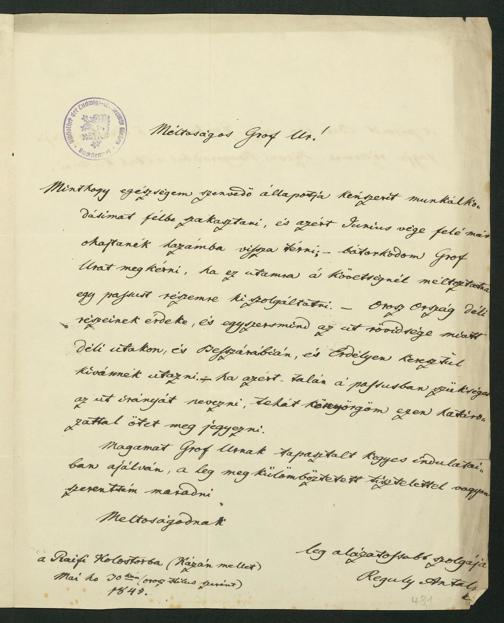 Méltoságos Grof Ur!
Minthogy egészségem szenvedő állapotja kénszerit munkálko-
dásimat félbe szakasztani, és azért Junius vége felé már
ohajtanék hazámba vissza térni; – bátorkodom Grof
Urat megkérni, ha ez utamra á követségnél méltoztatna
egy passust részemre kiszolgáltatni. – Orosz Ország déli
részeinek érdeke, és egyszersmind az út rövidsége miatt
déli utakon, és Besszárábián, és Erdélyen keresztül
kivánnék utazni. – ha azért talán á passusban szükséges
az út irányát nevezni, tehát könyörgöm ezen határo-
zattal ötet meg jegyezni.
Magamat Grof Urnak tapasztalt kegyes indulatai-
ban ajálván, a leg megkülömböztetett tisztelettel vagyon
szerentsém maradni
Meltoságodnak
leg alázatossabb szolgája
Reguly Antal
á Raifi Kolostorba (Kázán mellet)
Mai ho 30 (orosz stilus szerint)
481